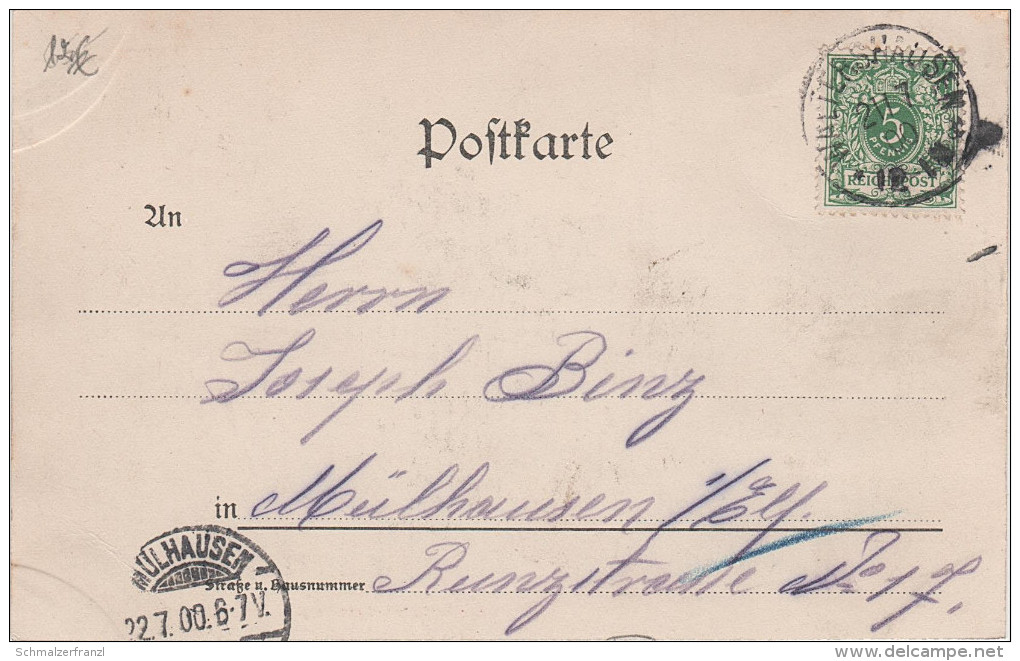 Postkarte
5
PFENNIG
REICHSPOST
An
Herrn
Joseph Binz
in Mülhausen i/Els.
Straße u. Hausnummer Runzstrasse No 17.
MÜLHAUSEN
22.7.00.6-7V.
Schmalzerfranzl
delcampe.net